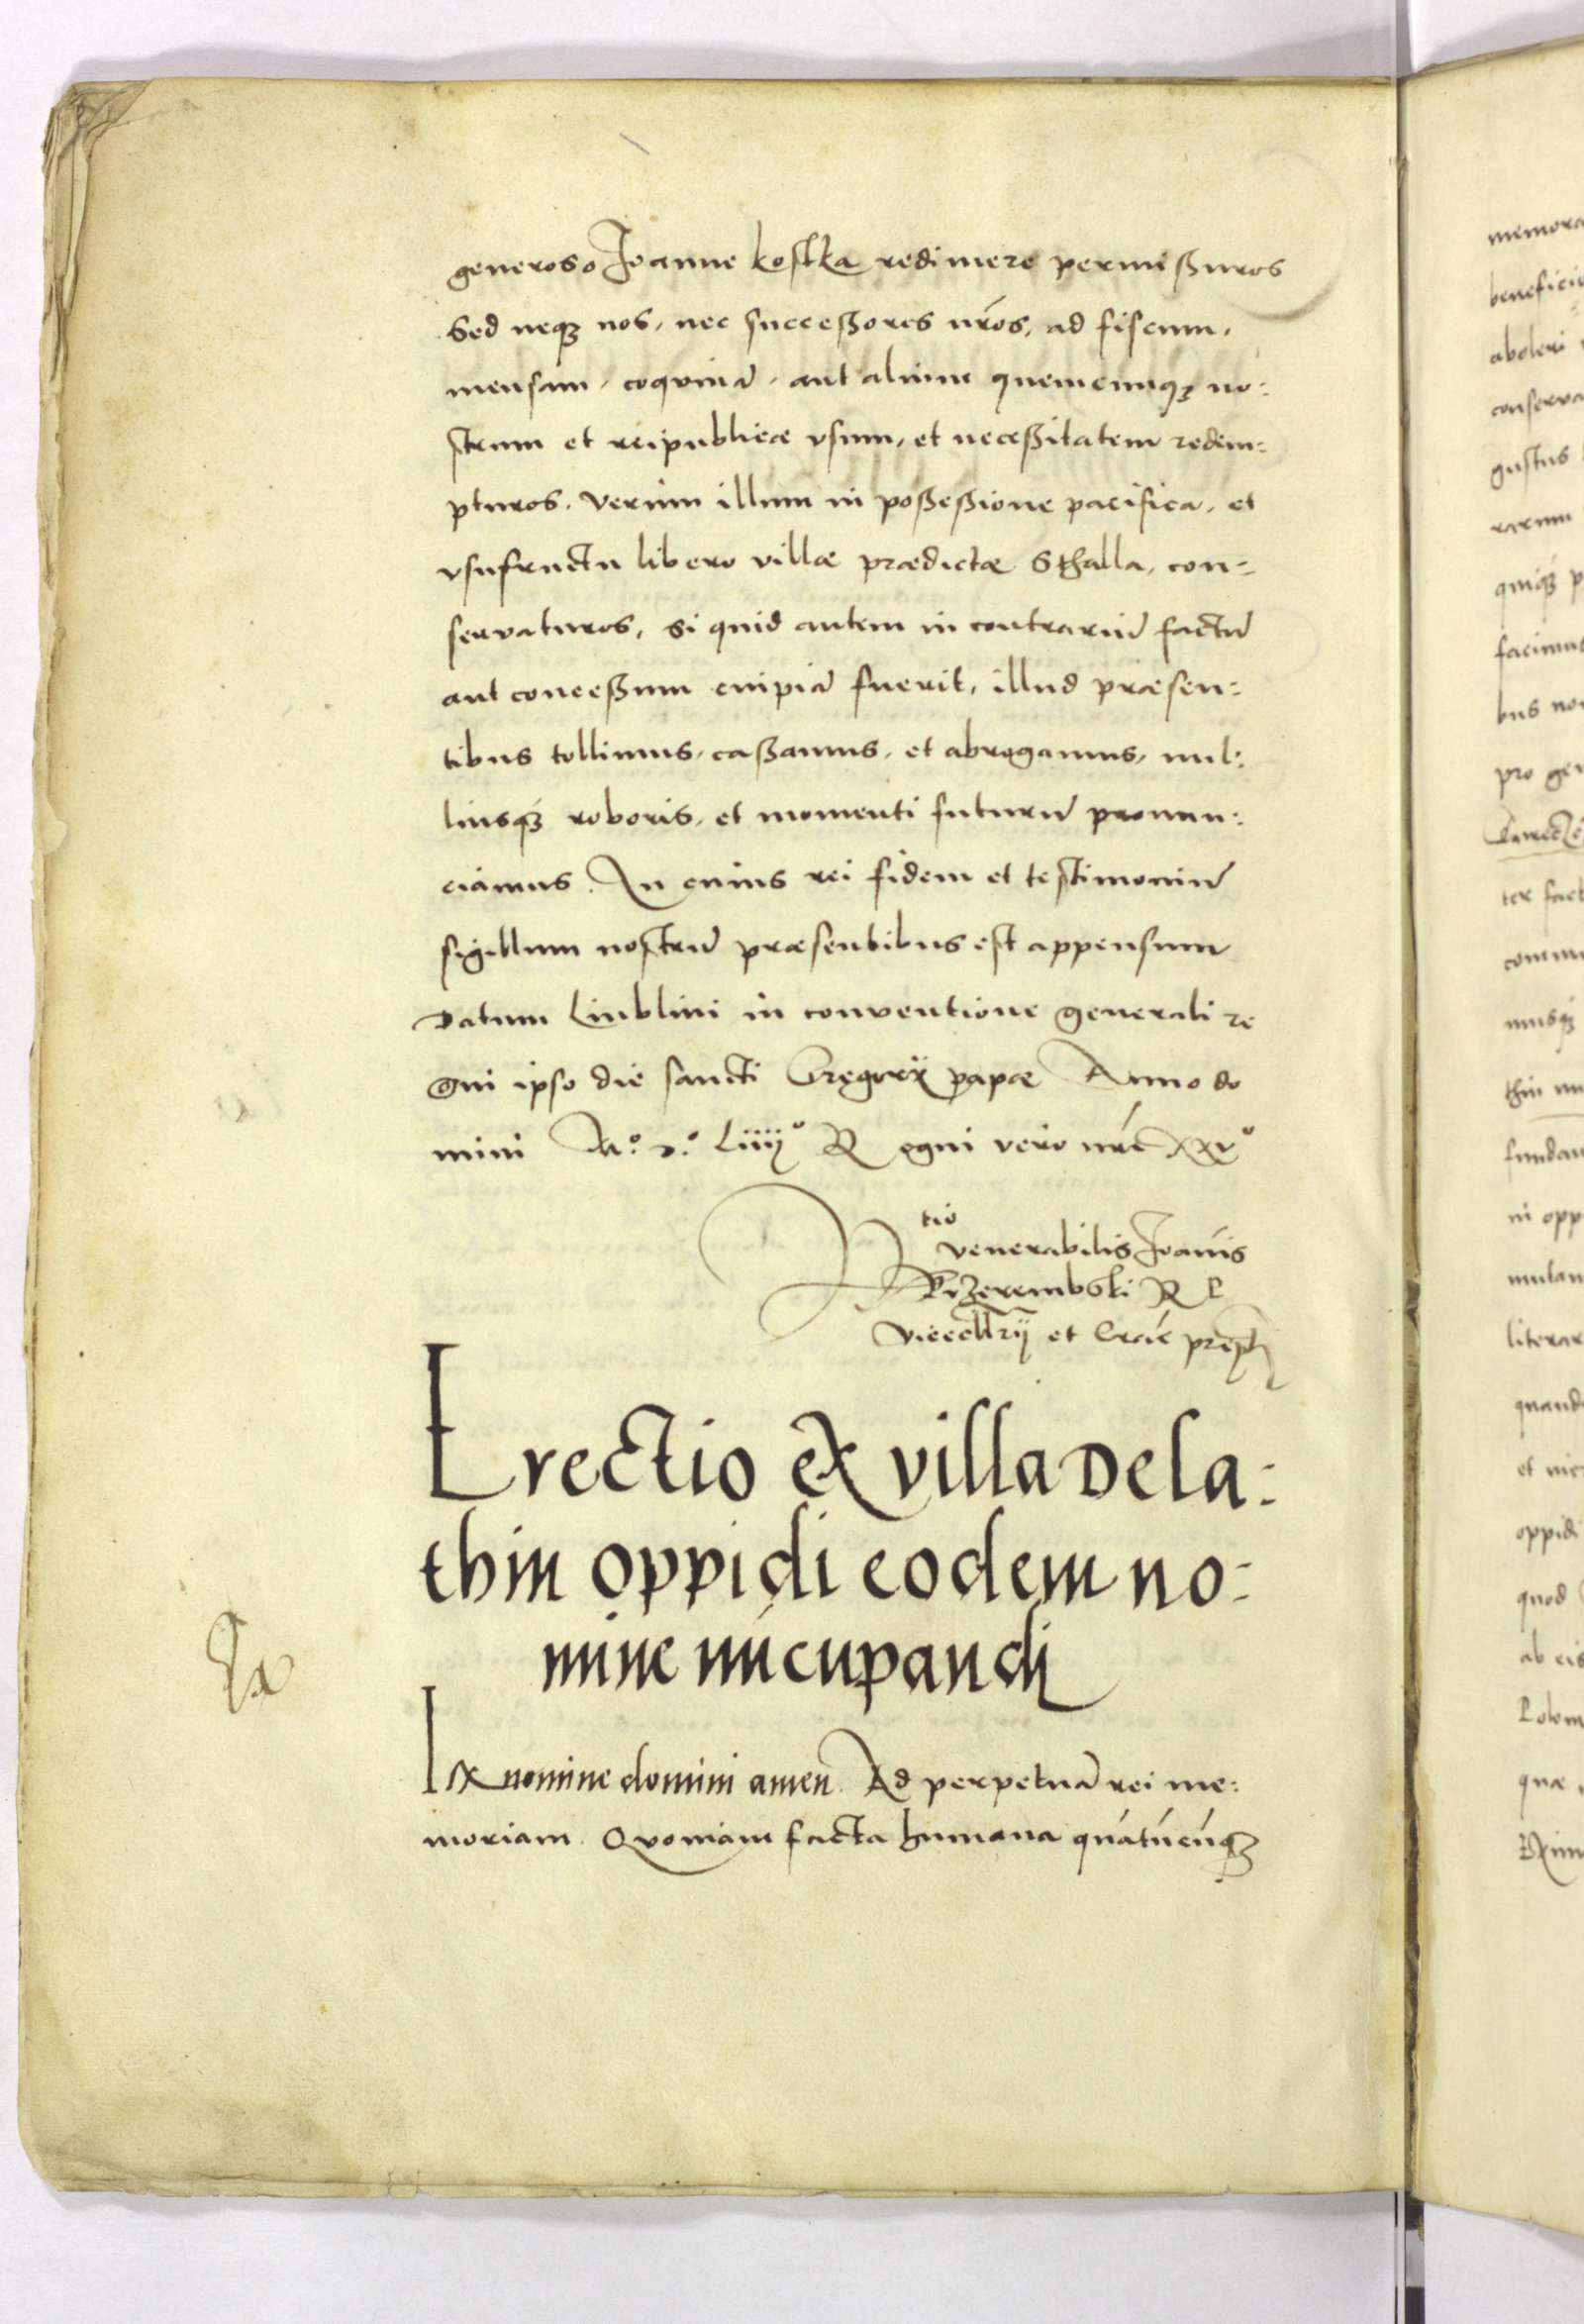 generoso Joanne kostka redimere permißuros
Sed neq3 nos, nec succeßores nr̃os, ad fiscum,
mensam, coquinā, aut alium quemcunq3 no:
strum et reipublicæ vsum, et neceßitatem redem:
pturos. Verum illum in poßeßione pacifica, et
vsufructu libero villæ prædictæ Sthalla, con:
servaturos, Si quid autem in contrariū factū
aut conceßum cuipiā fuerit, illud præsen:
tibus tollimus, caßamus, et abrogamus, nul:
liusq3 roboris, et momenti futurū pronun:
ciamus. In cuius rei fidem et testimoniū
sigillum nostrū præsentibus est appensum
Datum Liublini in conventione generali re
gni ipso die sancti Gregorij papæ Anno do
mini M.° D.° Liiij° Regni vero nr̃i XXV°
Rtio
venerabilis Joānis
Przerembski R P
Vicecllrij et Crac̃ prep̃ti
Erectio ex villa Dela:
thin oppidi eodem no:
mine nūcupandi
In nomine domini amen. Ad perpetuā rei me:
moriam. Quoniam facta humana quātūcūq3
memora
benefici
aboleri
conserva
gustus
rarum
quiq3 p
facimus
bus no
pro ge
ter fact
comm
nusq3
thin
fundan
in opp
mutan
literar
quand
et
oppidi
quod
ab eis
quæ